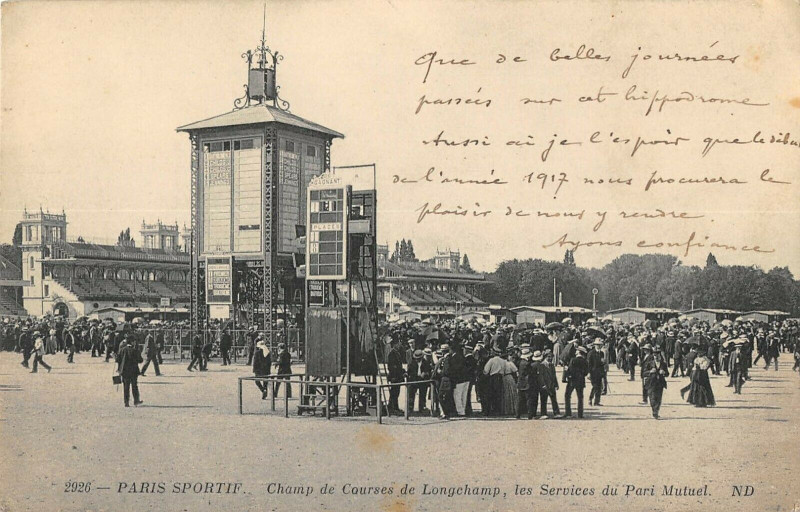 Que de belles journées
passées sur cet hippodrome
Aussi ai je l'espoir que le début
de l'année 1917 nous procurera le
plaisir de nous y rendre.
Ayons confiance
GAGNANT
PLACÉS
2926 — PARIS SPORTIF. Champ de Courses de Longchamp, les Services du Pari Mutuel. ND